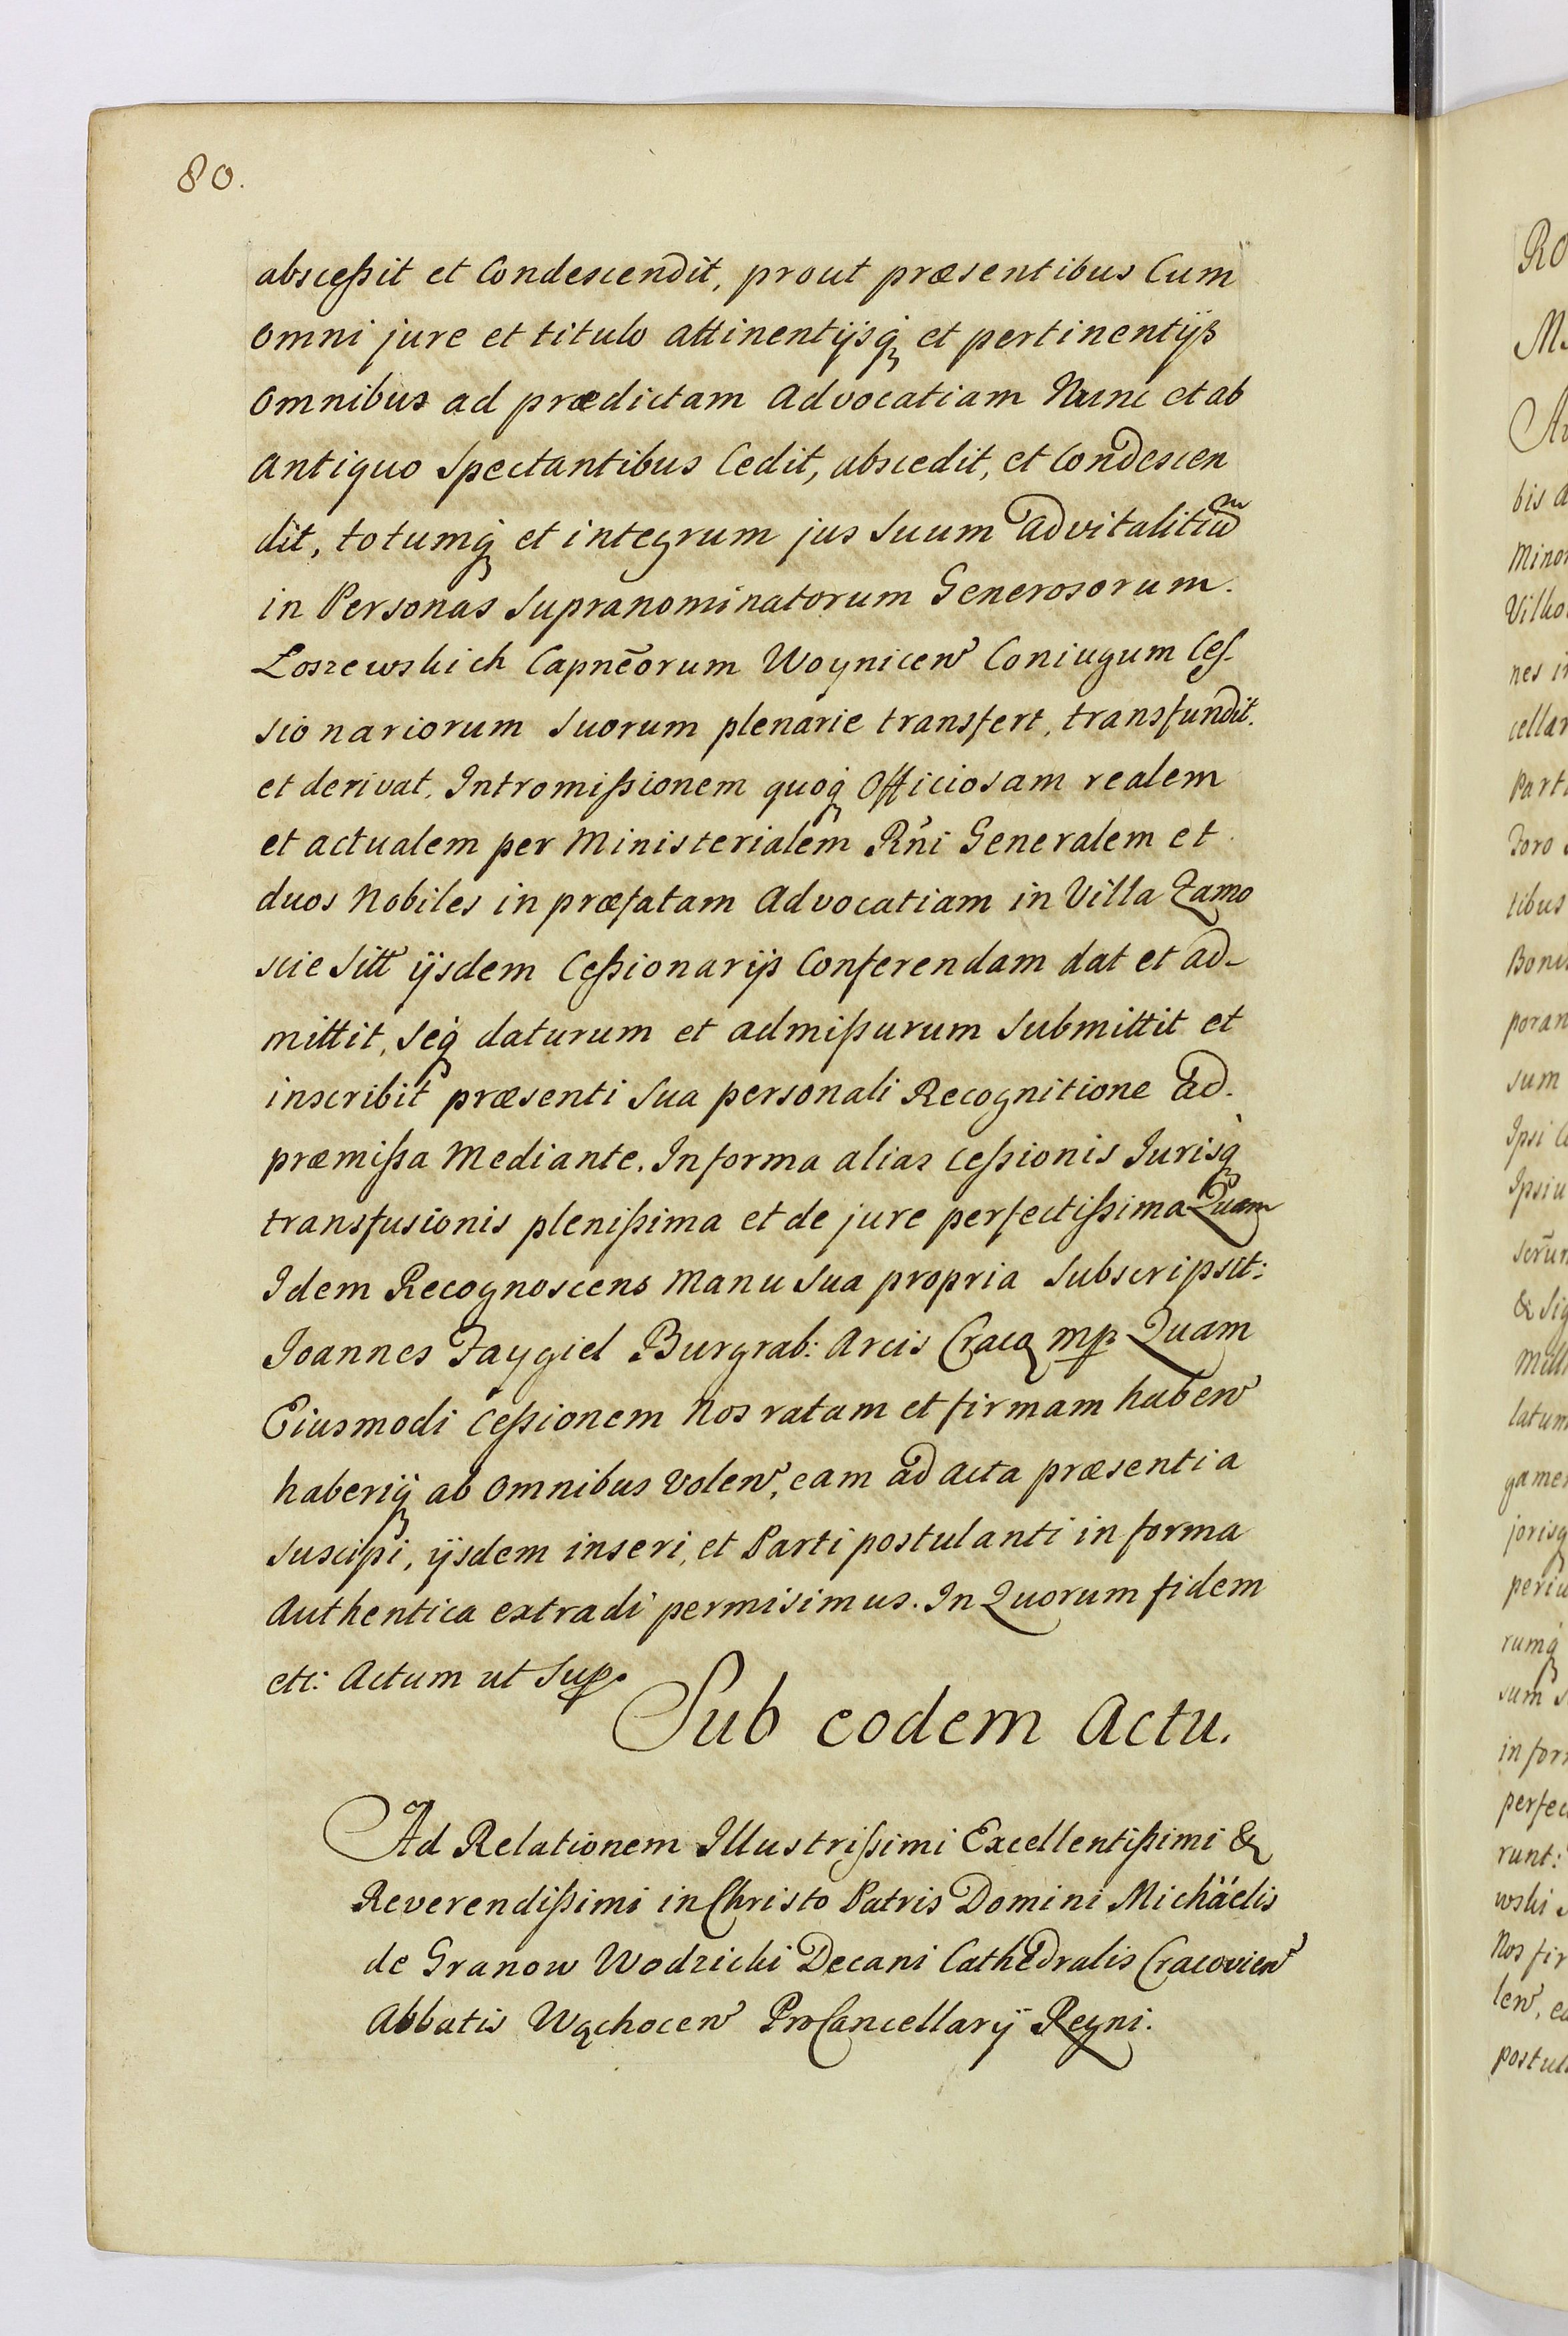 80.
absceßit et Condescendit, prout præsentibus Cum
Omni jure et titulo attinentijsq́ꝫ et pertinentijs
Omnibus ad prædictam Advocatiam Nunc et ab
Antiquo Spectantibus Cedit, abscedit, et Condescen
dit, totumq́ꝫ et integrum jus Suum advitalitiũ
in Personas Supranominatorum Generosorum.
Łoszewskich Capnẽorum Woynicen̄ Coniugum Ces-
sionariorum Suorum plenárie transfert, transfundit.
et derivat. Intromißionem quoq́ꝫ Officiosam realem
et actualem per Ministerialem Rn̄i Generalem et
duos Nobiles in præfatam Advocatiam in Villa Zamo
scie Sitt̃ ijsdem Ceßionarijs Conferendam dat et ad-
mittit, Seq́ꝫ daturum et admißurum Submittit et
inscribit præsenti Sua personali Recognitione ad.
præmißa Mediante. In forma alias Ceßionis Jurisq́ꝫ
transfusionis plenißima et de jure perfectißima Quam
Idem Recognoscens Manu Sua propria Subscripsit:
Joannes Faygiel Burgrab: Arcis Cracꝫ mp. Quam
Eiusmodi Ceßionem Nos ratam et firmam haben̄
haberiq́ꝫ ab Omnibus Volen̄, eam ad acta præsentia
Suscipi, ijsdem inseri, et Parti postulanti in forma
Authentica extradi permisimus. In Quorum fidem
etc: Actum ut Sup.
Sub eodem Actu.
Ad Relationem Illustrißimi Excellentißimi &
Reverendißimi in Christo Patris Domini Michäelis
de Granow Wodzicki Decani Cathedralis Cracovien̄
Abbatis Wąchocen̄ ProCancellarij Regni.
RO
bis a
Mino
nes i
cellar
Parti
Foro
tibus
Boni
poran
sum
Ipsi C
Ipsiu
& Sig
latum
game
jorisq
rumq́
sum
in for
perfec
runt:
wski
Nos fir
len̄, ea
postul